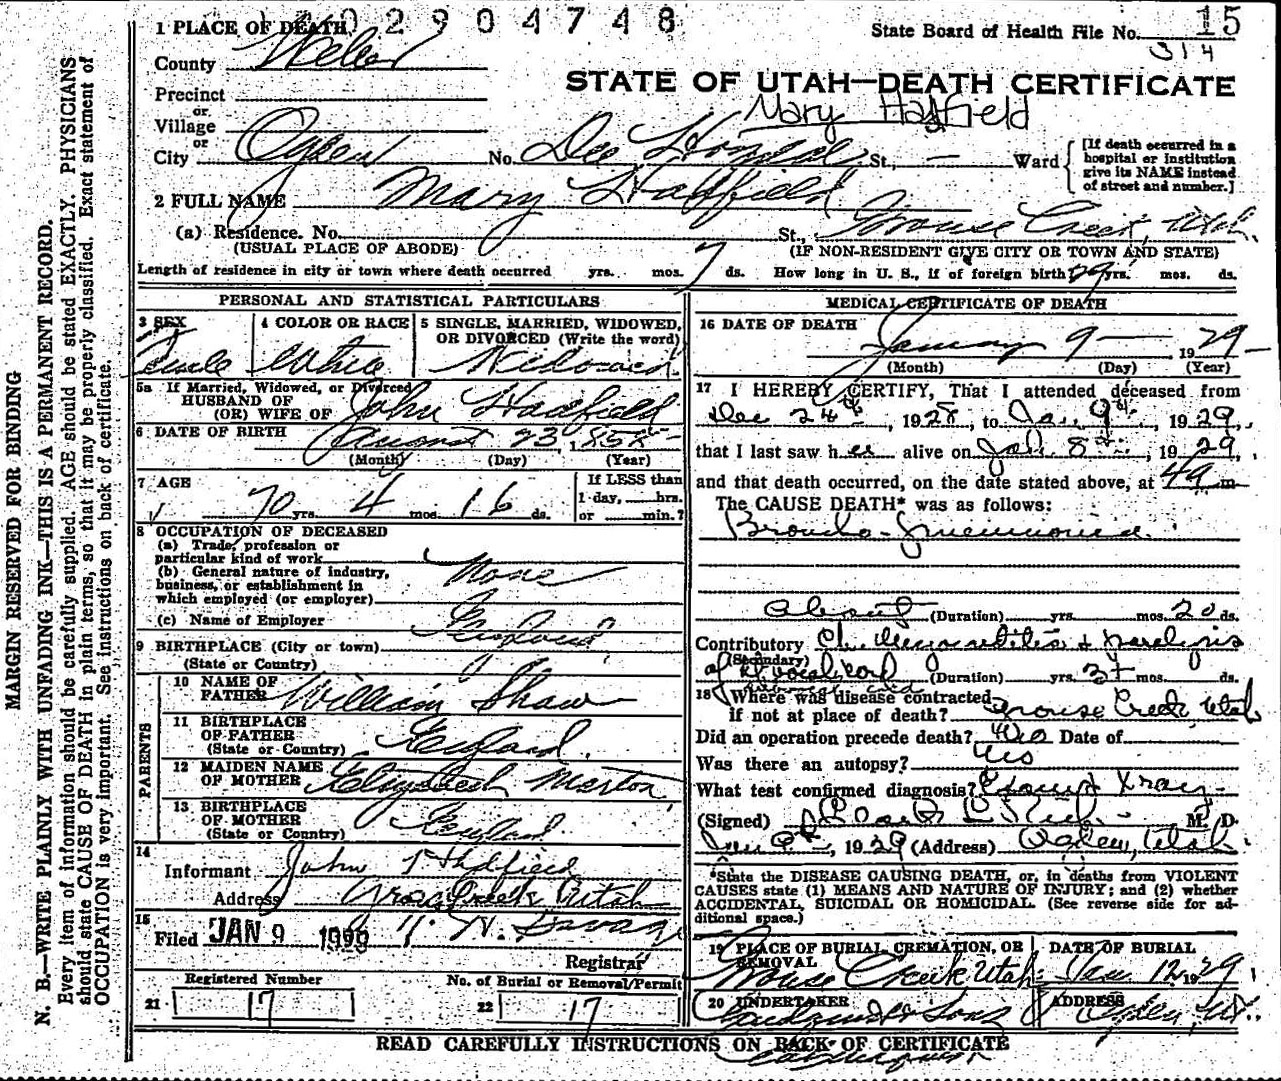 2904748
State Board of Health File No. 15
314
STATE OF UTAH—DEATH CERTIFICATE
Mary Hadfield
1 PLACE OF DEATH
County Weber
Precinct
or
Village
or
City Ogden No. Dee Hospital St., — Ward
[If death occurred in a hospital or institution give its NAME instead of street and number.]
2 FULL NAME Mary Hadfield
(a) Residence. No. St., Grouse Creek, Utah.
(USUAL PLACE OF ABODE) (IF NON-RESIDENT GIVE CITY OR TOWN AND STATE)
Length of residence in city or town where death occurred yrs. mos. 7 ds. How long in U. S., if of foreign birth? yrs. mos. ds.
PERSONAL AND STATISTICAL PARTICULARS
3 SEX
Female
4 COLOR OR RACE
White
5 SINGLE, MARRIED, WIDOWED, OR DIVORCED (Write the word)
Widowed.
5a If Married, Widowed, or Divorced
HUSBAND OF
(OR) WIFE OF John Hadfield
6 DATE OF BIRTH August 23, 1858
(Month) (Day) (Year)
7 AGE
70 yrs. 4 mos. 16 ds.
If LESS than
1 day, hrs.
or min.?
8 OCCUPATION OF DECEASED
(a) Trade, profession or
particular kind of work
(b) General nature of industry,
business, or establishment in
which employed (or employer)
None
(c) Name of Employer
9 BIRTHPLACE (City or town) England
(State or Country)
PARENTS
10 NAME OF FATHER William Shaw
11 BIRTHPLACE OF FATHER (State or Country) England.
12 MAIDEN NAME OF MOTHER Elizabeth Morton
13 BIRTHPLACE OF MOTHER (State or Country) England.
14
Informant John T Hadfield
Address Grouse Creek Utah
15
Filed JAN 9 1929
Registrar
Registered Number
21 17
No. of Burial or Removal Permit
22 17
MEDICAL CERTIFICATE OF DEATH
16 DATE OF DEATH
January 9— 1929
(Month) (Day) (Year)
17 I HEREBY CERTIFY, That I attended deceased from
Dec 24th, 1928, to Jan. 9th, 1929,
that I last saw her alive on Jan. 8th, 1929,
and that death occurred, on the date stated above, at m
The CAUSE DEATH* was as follows:
Broncho-pneumonia.
About (Duration) yrs. mos. 20 ds.
Contributory Ch. & paralysis
(Secondary)
of vocal cord (Duration) yrs. mos. ds.
18 Where was disease contracted
if not at place of death? Grouse Creek, Utah
Did an operation precede death? No Date of
Was there an autopsy? No
What test confirmed diagnosis? Xray
(Signed) M. D.
Jan 9, 1929 (Address) Ogden, Utah.
*State the DISEASE CAUSING DEATH, or, in deaths from VIOLENT
CAUSES state (1) MEANS AND NATURE OF INJURY; and (2) whether
ACCIDENTAL, SUICIDAL OR HOMICIDAL. (See reverse side for ad-
ditional space.)
19 PLACE OF BURIAL, CREMATION, OR REMOVAL
Grouse Creek Utah
DATE OF BURIAL
Jan. 12, 1929
20 UNDERTAKER
& Sons
ADDRESS
Ogden, Ut.
READ CAREFULLY INSTRUCTIONS ON BACK OF CERTIFICATE
MARGIN RESERVED FOR BINDING
N. B.—WRITE PLAINLY WITH UNFADING INK—THIS IS A PERMANENT RECORD.
Every item of information should be carefully supplied. AGE should be stated EXACTLY. PHYSICIANS
should state CAUSE OF DEATH in plain terms, so that it may be properly classified. Exact statement of
OCCUPATION is very important. See instructions on back of certificate.